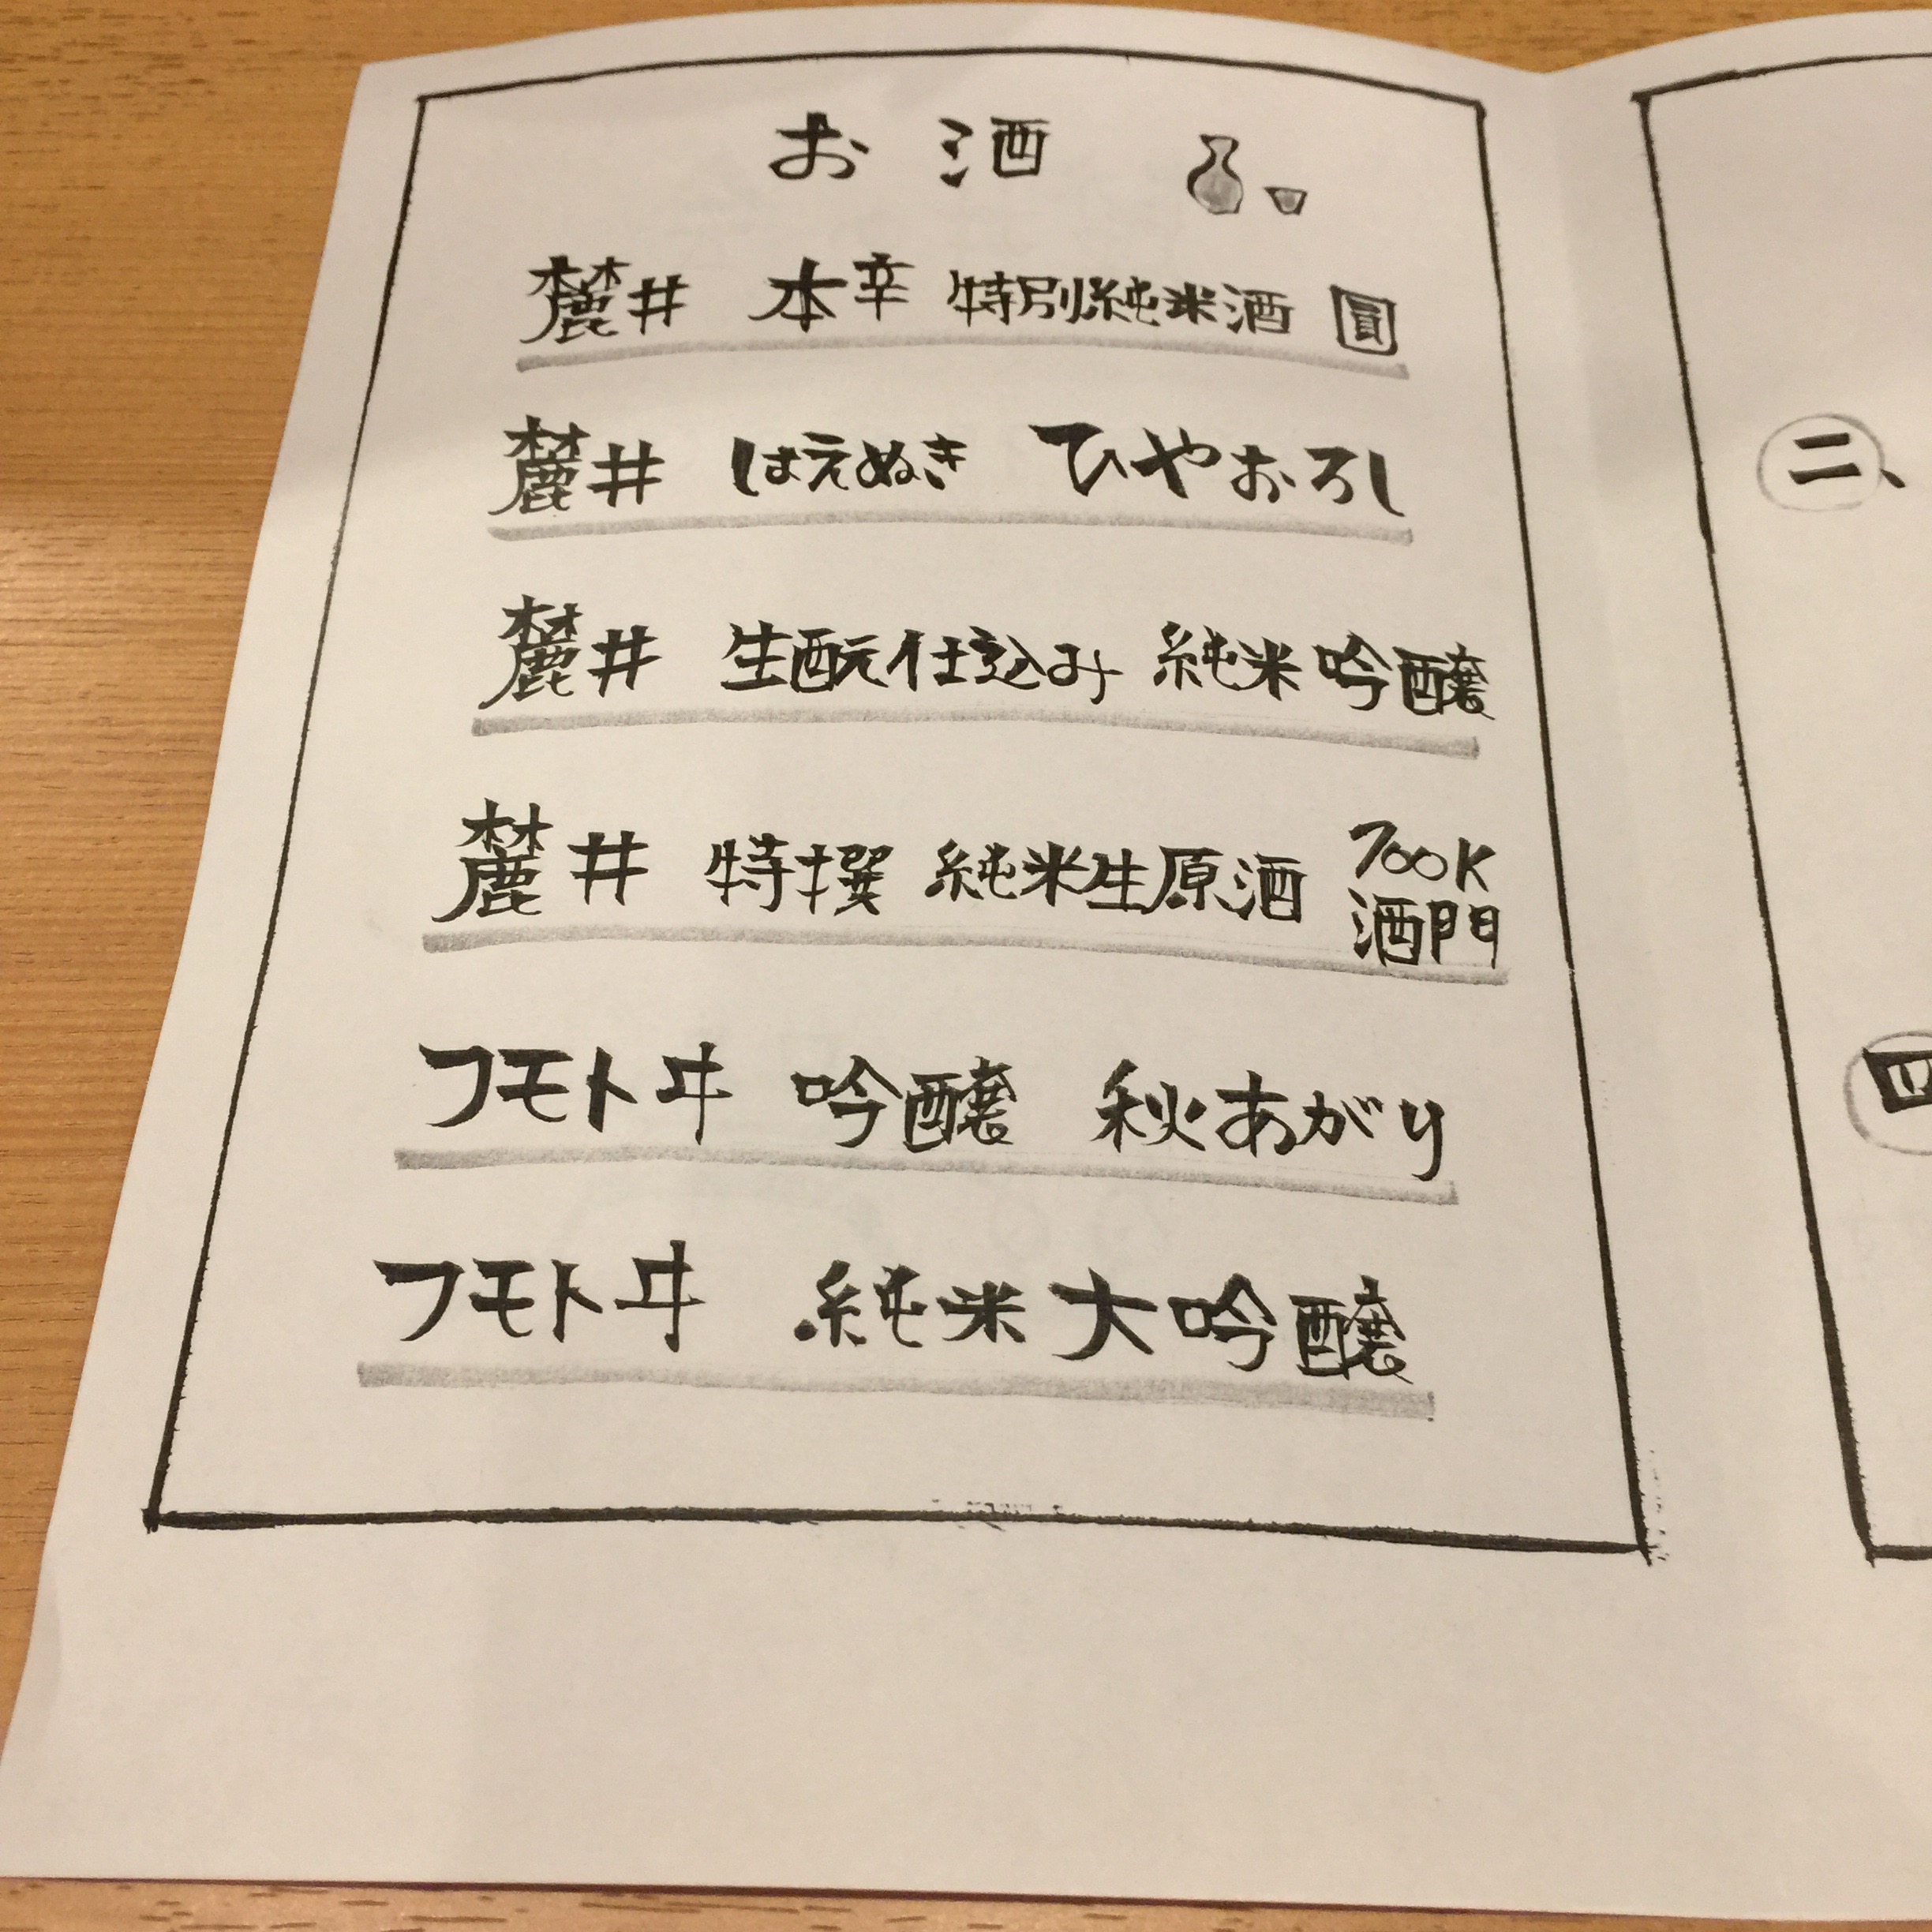 お酒
麓井 本辛 特別純米酒 圓
麓井 はえぬき ひやおろし
麓井 生酛仕込み 純米吟醸
麓井 特撰 純米生原酒 700K
酒門
フモトヰ 吟醸 秋あがり
フモトヰ 純米大吟醸
二、
四